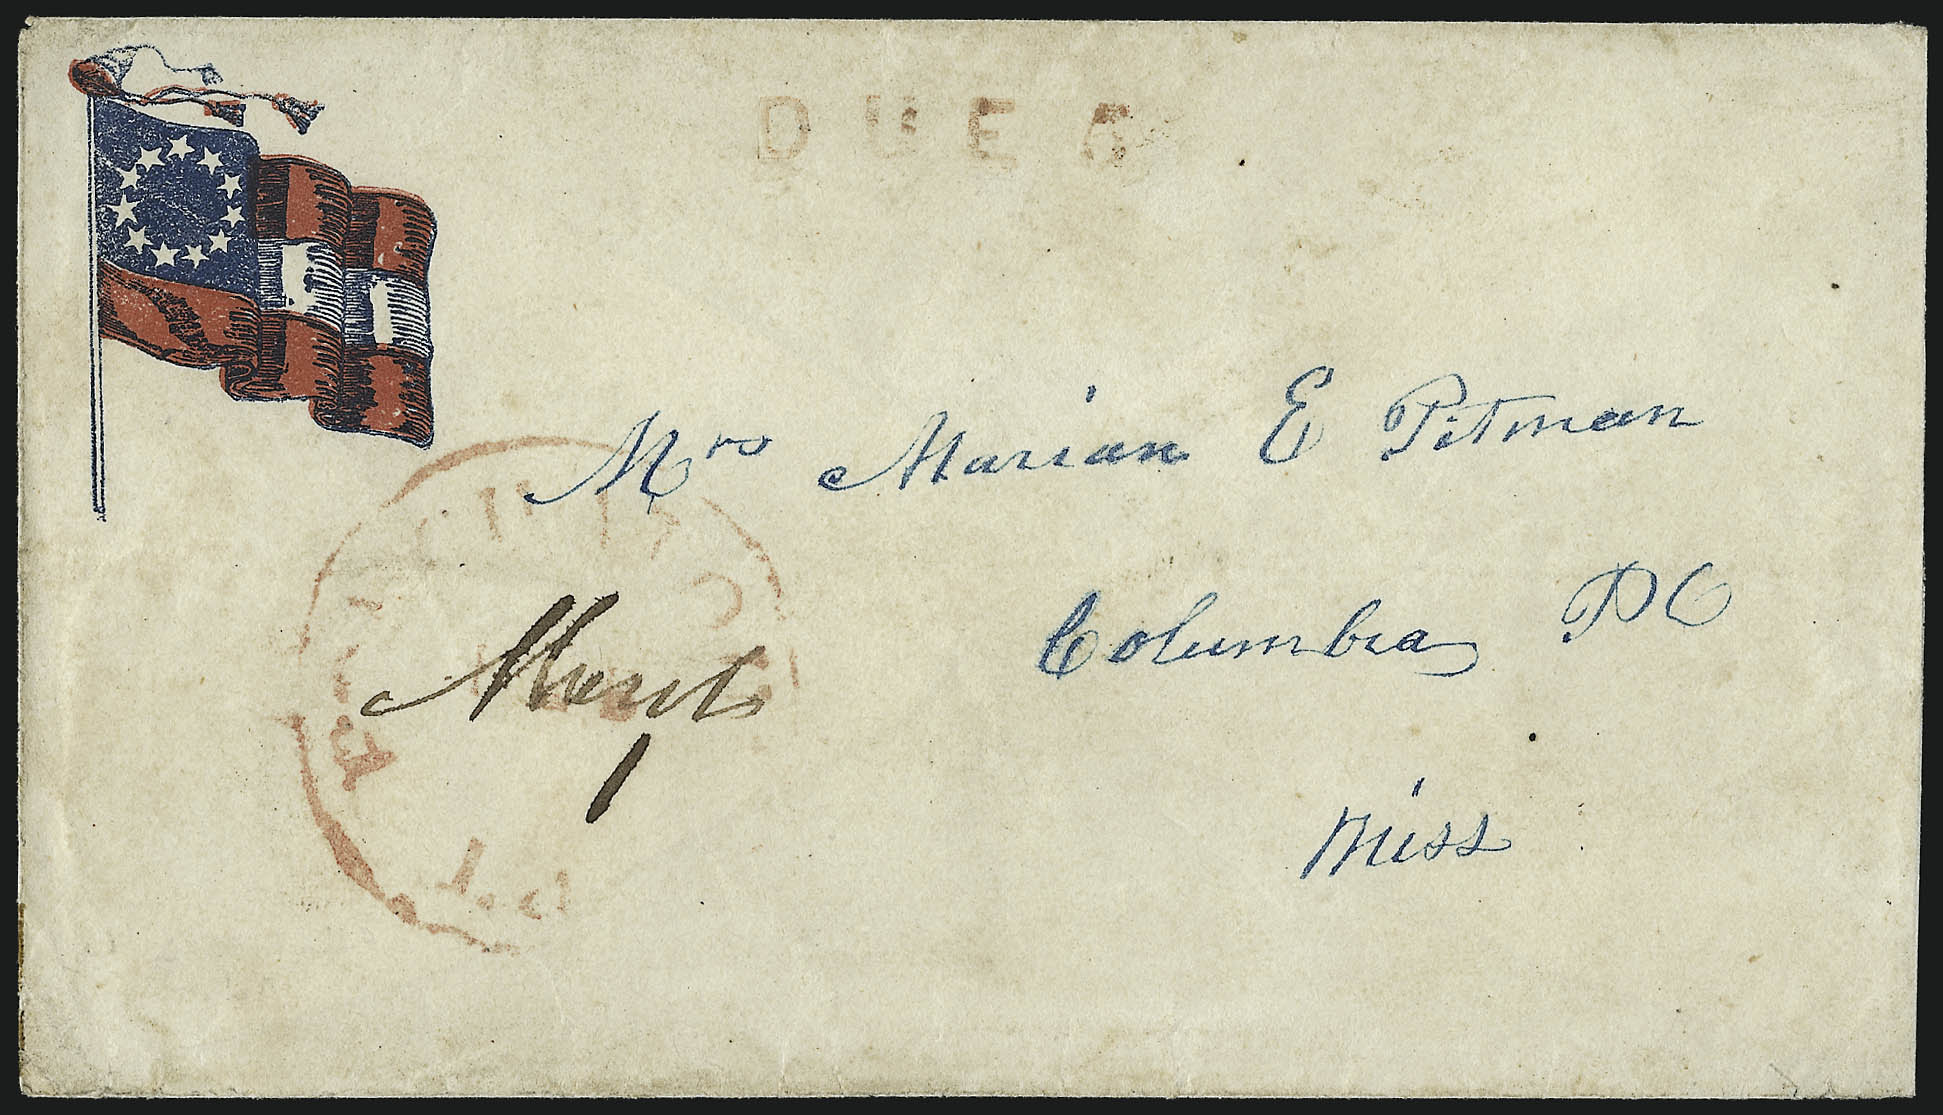 DUE 5
Mrs Marian E Pitman
Columbia P O
Miss